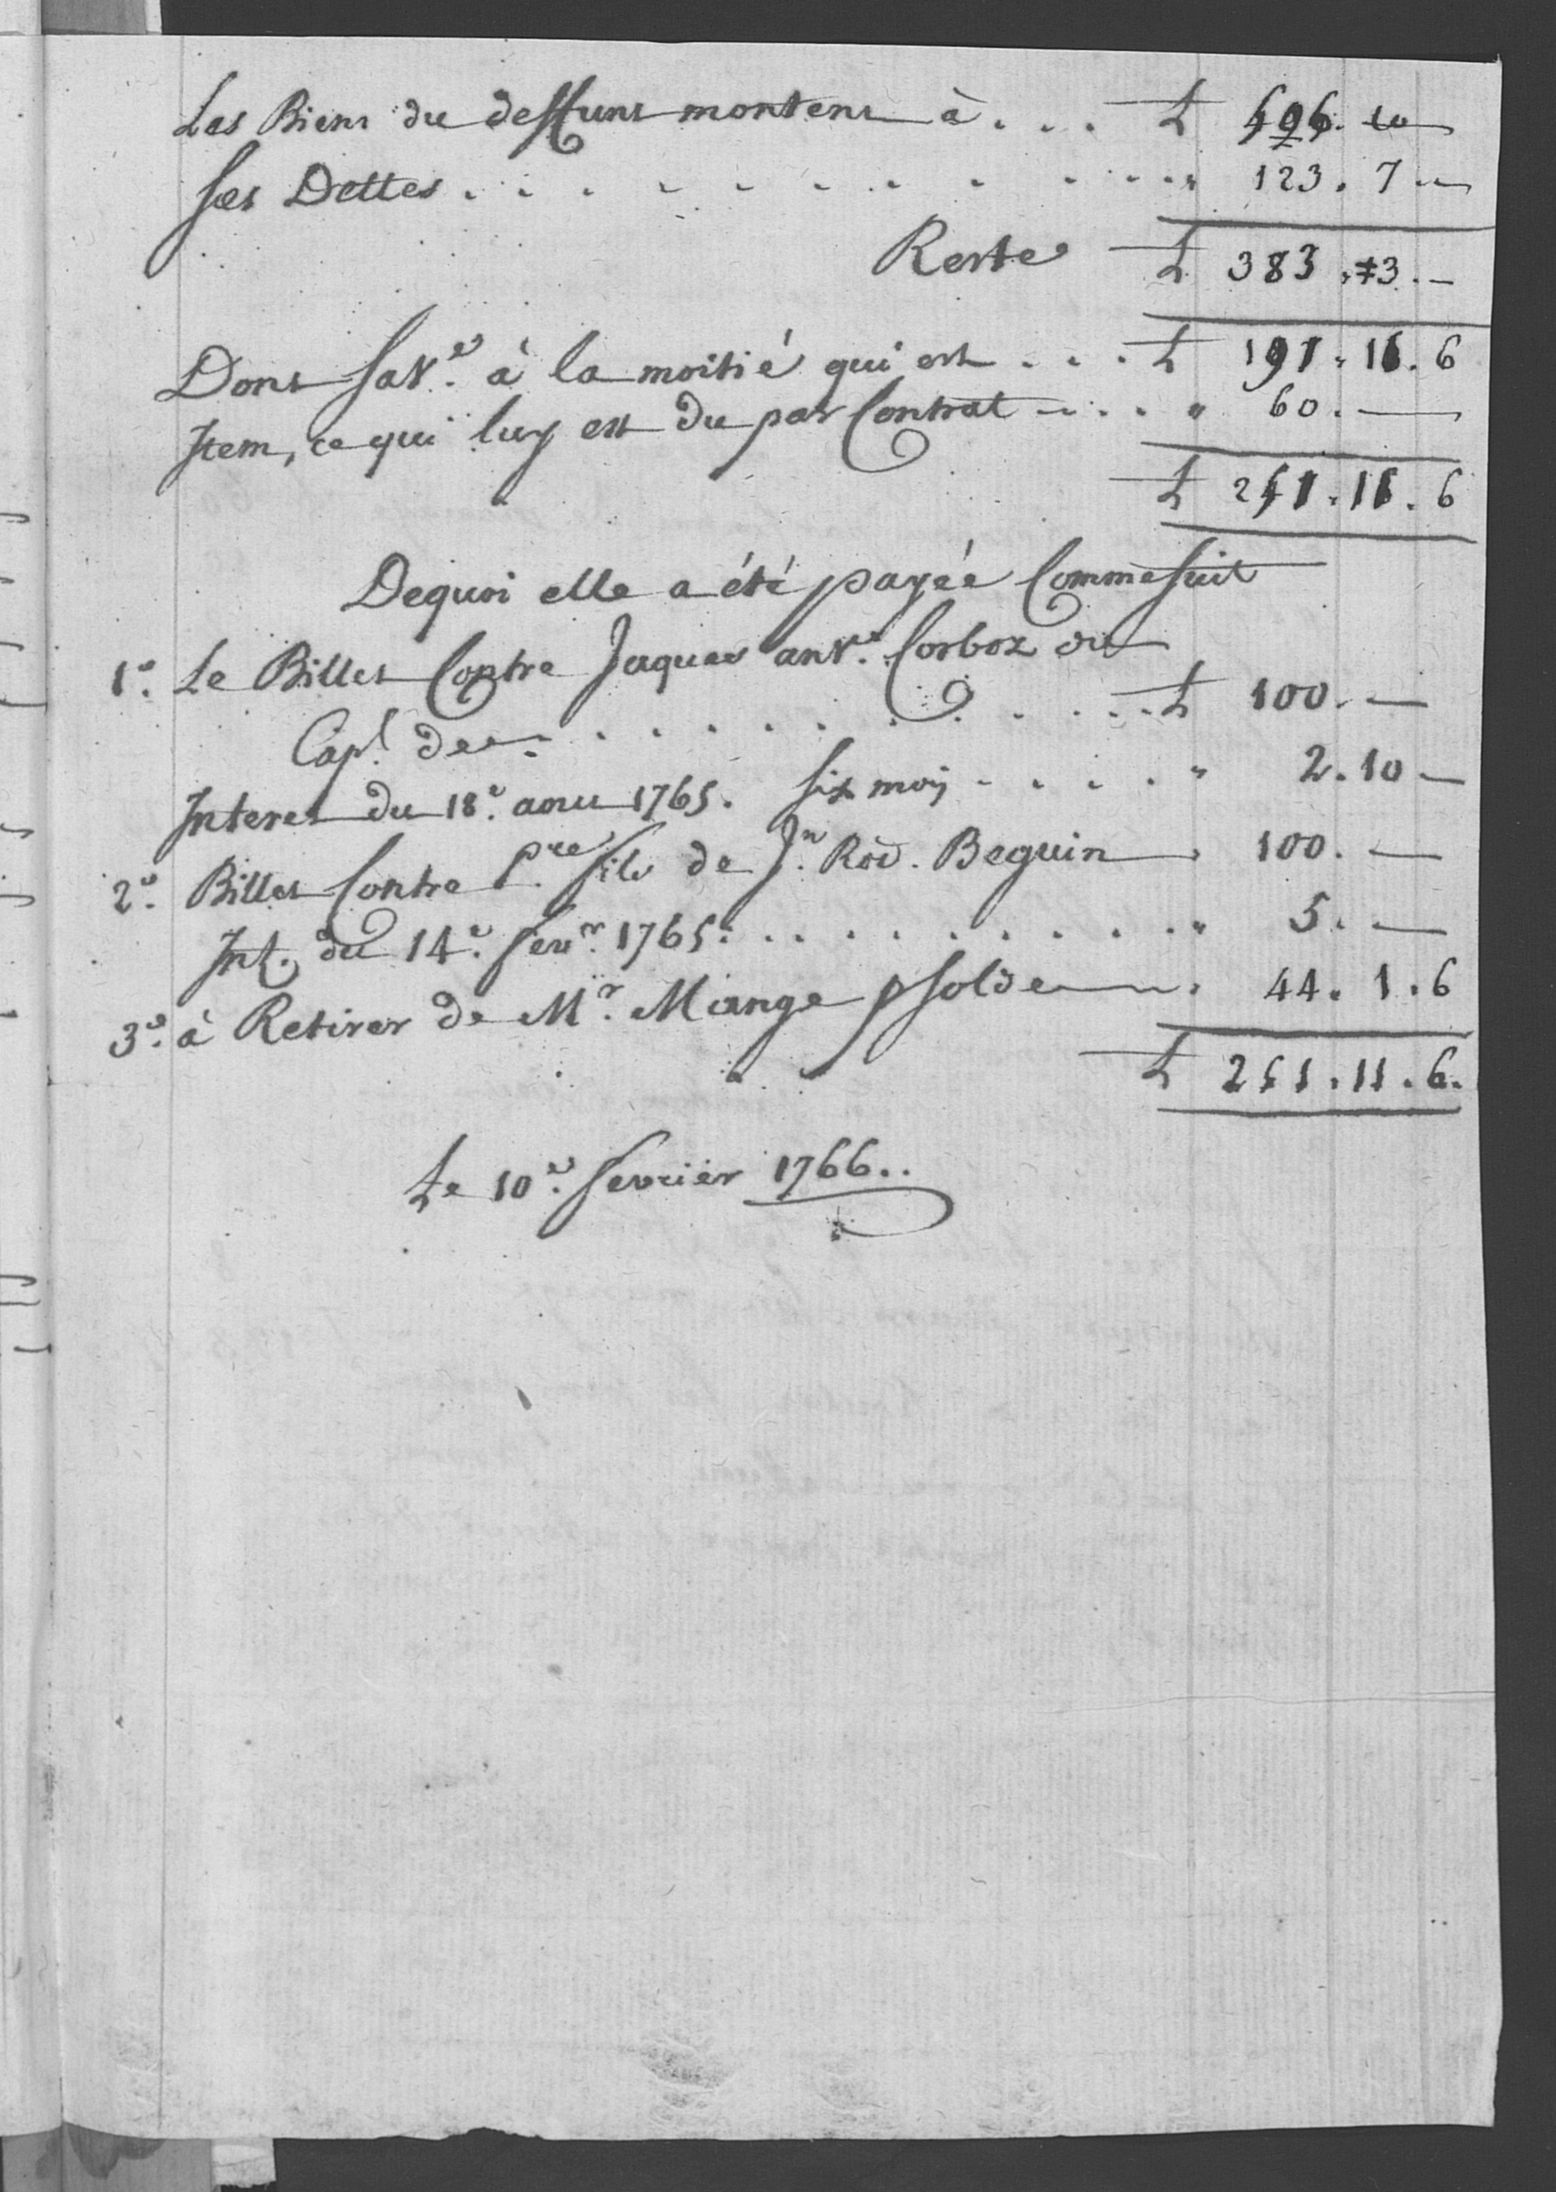 Les Biens du deffunt montent à . . . L 506. 10 —
ses Dettes . . . . . . . . . . . " 123. 7 —
Reste L 383. 3. —
Dont la Ve. à la moitié qui est . . . L 191. 11. 6
Item, ce qui luy est du par Contrat . . . " 60. —
L 251. 11. 6
Dequoi elle a été payée Comme suit
1e. Le Billet Contre Jaques Corboz du
Capl. de . . . . . . . . . . L 100. —
Interet du 18e. aout 1765. six mois . . . . " 2. 10 —
2e. Billet Contre Pre. fils de Jn. Rod. Beguin " 100. —
Int. du 14e. fevr. 1765. . . . . . . . . . " 5. —
3e. à Retirer de Mr. Mange p solde " 44. 1. 6
L 251. 11. 6.
Le 10e. fevrier 1766..